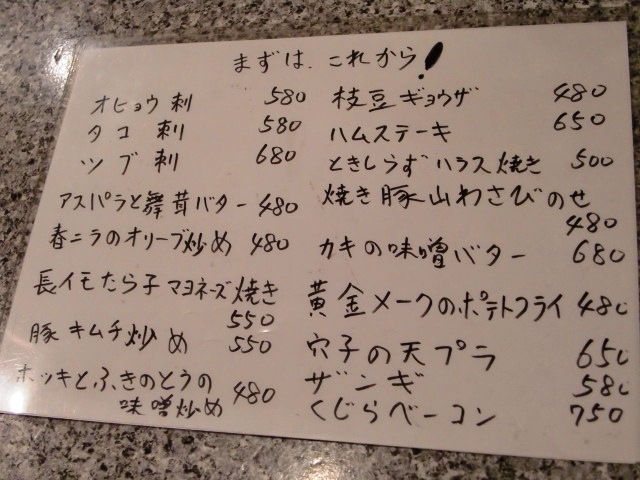 まずは、これから!
オヒョウ刺 580
タコ刺 580
ツブ刺 680
アスパラと舞茸バター 480
春ニラのオリーブ炒め 480
長イモたら子マヨネーズ焼き
550
豚キムチ炒め 550
ホッキとふきのとうの
味噌炒め 480
枝豆ギョウザ 480
ハムステーキ 650
ときしらずハラス焼き 500
焼き豚山わさびのせ
480
カキの味噌バター 680
黄金メークのポテトフライ 480
穴子の天プラ 650
ザンギ 580
くじらベーコン 750